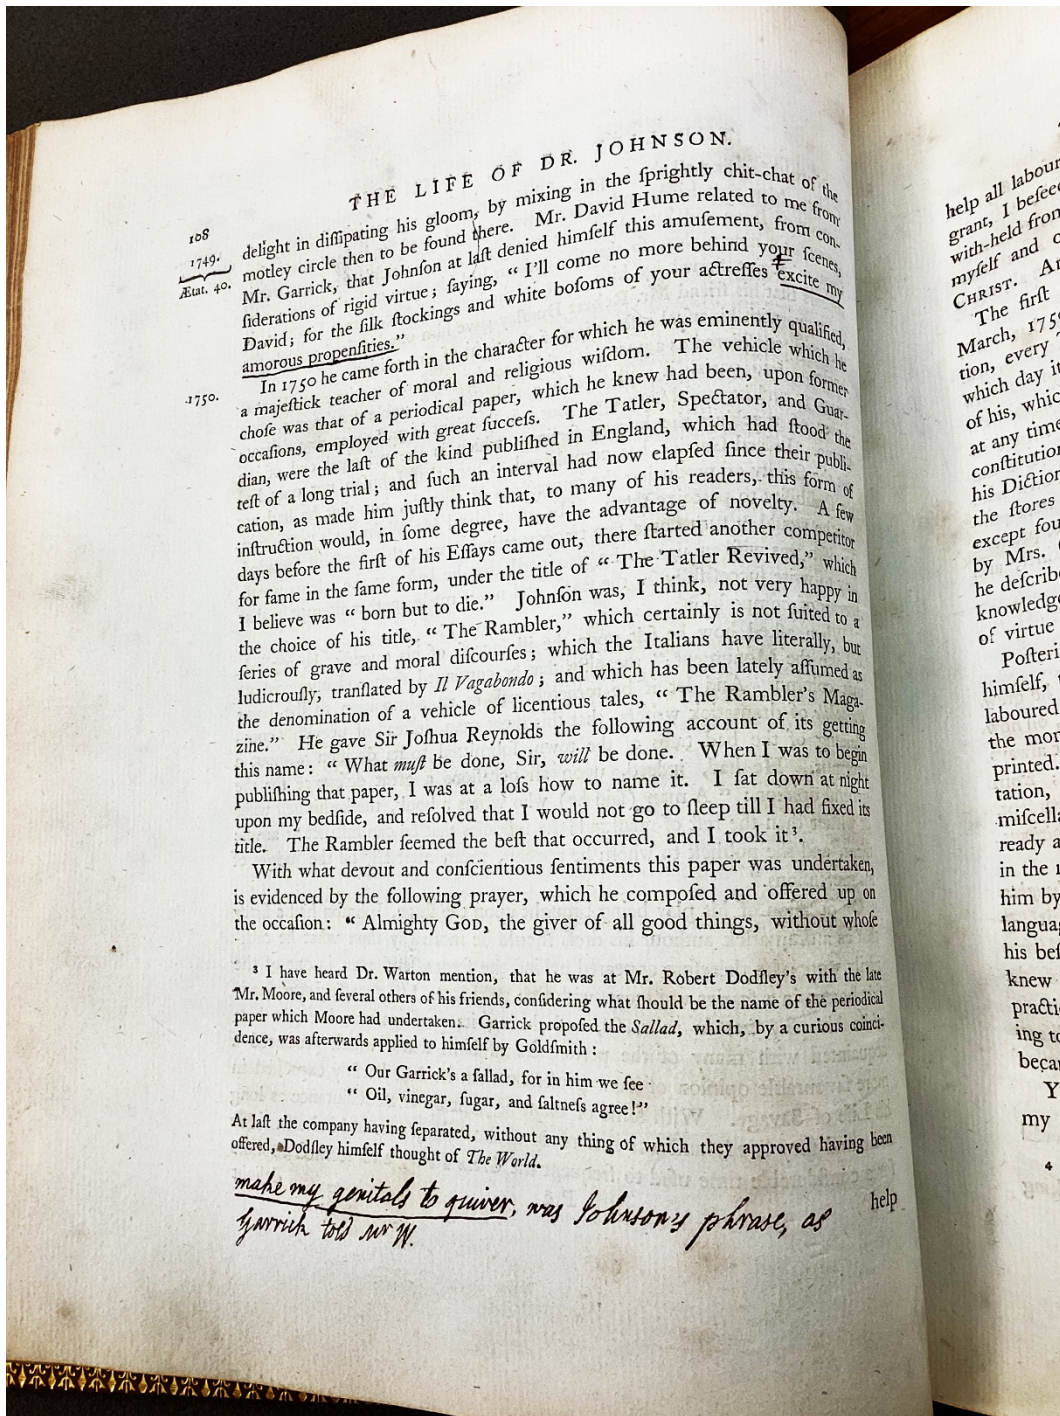 THE LIFE OF DR. JOHNSON.
108
1749.
Ætat. 40.
delight in diſſipating his gloom, by mixing in the ſprightly chit-chat of the
motley circle then to be found there. Mr. David Hume related to me from
Mr. Garrick, that Johnſon at laſt denied himſelf this amuſement, from con-
ſiderations of rigid virtue; ſaying, “ I'll come no more behind your ſcenes,
David; for the ſilk ſtockings and white boſoms of your actreſſes excite my
amorous propenſities.”
1750.
In 1750 he came forth in the character for which he was eminently qualified,
a majeſtick teacher of moral and religious wiſdom. The vehicle which he
choſe was that of a periodical paper, which he knew had been, upon former
occaſions, employed with great ſucceſs. The Tatler, Spectator, and Guar-
dian, were the laſt of the kind publiſhed in England, which had ſtood the
teſt of a long trial; and ſuch an interval had now elapſed ſince their publi-
cation, as made him juſtly think that, to many of his readers, this form of
inſtruction would, in ſome degree, have the advantage of novelty. A few
days before the firſt of his Eſſays came out, there ſtarted another competitor
for fame in the ſame form, under the title of “ The Tatler Revived,” which
I believe was “ born but to die.” Johnſon was, I think, not very happy in
the choice of his title, “ The Rambler,” which certainly is not ſuited to a
ſeries of grave and moral diſcourſes; which the Italians have literally, but
ludicrouſly, tranſlated by Il Vagabondo; and which has been lately aſſumed as
the denomination of a vehicle of licentious tales, “ The Rambler's Maga-
zine.” He gave Sir Joſhua Reynolds the following account of its getting
this name: “ What muſt be done, Sir, will be done. When I was to begin
publiſhing that paper, I was at a loſs how to name it. I ſat down at night
upon my bedſide, and reſolved that I would not go to ſleep till I had fixed its
title. The Rambler ſeemed the beſt that occurred, and I took it ³.
With what devout and conſcientious ſentiments this paper was undertaken,
is evidenced by the following prayer, which he compoſed and offered up on
the occaſion: “ Almighty GOD, the giver of all good things, without whoſe
³ I have heard Dr. Warton mention, that he was at Mr. Robert Dodſley's with the late
Mr. Moore, and ſeveral others of his friends, conſidering what ſhould be the name of the periodical
paper which Moore had undertaken. Garrick propoſed the Sallad, which, by a curious coinci-
dence, was afterwards applied to himſelf by Goldſmith:
“ Our Garrick's a ſallad, for in him we ſee
“ Oil, vinegar, ſugar, and ſaltneſs agree!”
At laſt the company having ſeparated, without any thing of which they approved having been
offered, Dodſley himſelf thought of The World.
help
make my genitals to quiver, was Johnson's phrase, as
Garrick told Mr W.
help all labour
grant, I beſee
with-held from
myſelf and
CHRIST.
The firſt
March, 175
tion, every
which day it
of his, whic
at any time
conſtitution
his Diction
the ſtores
except fou
by Mrs.
he deſcribe
knowledge
of virtue
Poſteri
himſelf,
laboured
the mor
printed.
tation,
miſcella
ready a
in the
him by
langua
his beſ
knew
practi
ing to
becam
Y
my
4